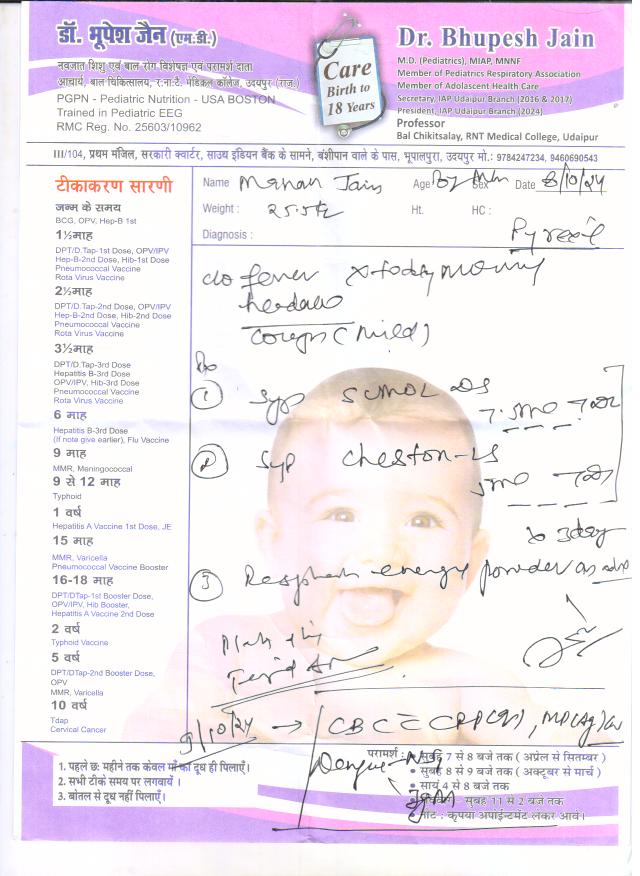 डॉ. भूपेश जैन (एम.डी.)
नवजात शिशु एवं बाल रोग विशेषज्ञ एवं परामर्श दाता
आचार्य, बाल चिकित्सालय, र.ना.टै. मेडिकल कॉलेज, उदयपुर (राज.)
PGPN - Pediatric Nutrition - USA BOSTON
Trained in Pediatric EEG
RMC Reg. No. 25603/10962
Care
Birth to
18 Years
Dr. Bhupesh Jain
M.D. (Pediatrics), MIAP, MNNF
Member of Pediatrics Respiratory Association
Member of Adolascent Health Care
Secretary, IAP Udaipur Branch (2016 & 2017)
President, IAP Udaipur Branch (2024)
Professor
Bal Chikitsalay, RNT Medical College, Udaipur
III/104, प्रथम मंजिल, सरकारी क्वार्टर, साउथ इंडियन बैंक के सामने, बंशीपान वाले के पास, भूपालपुरा, उदयपुर मो.: 9784247234, 9460690543
टीकाकरण सारणी
जन्म के समय
BCG, OPV, Hep-B 1st
1½माह
DPT/D.Tap-1st Dose, OPV/IPV
Hep-B-2nd Dose, Hib-1st Dose
Pneumococcal Vaccine
Rota Virus Vaccine
2½माह
DPT/D.Tap-2nd Dose, OPV/IPV
Hep-B-2nd Dose, Hib-2nd Dose
Pneumococcal Vaccine
Rota Virus Vaccine
3½माह
DPT/D.Tap-3rd Dose
Hepatitis B-3rd Dose
OPV/IPV, Hib-3rd Dose
Pneumococcal Vaccine
Rota Virus Vaccine
6 माह
Hepatitis B-3rd Dose
(If note give earlier), Flu Vaccine
9 माह
MMR, Meningococcal
9 से 12 माह
Typhoid
1 वर्ष
Hepatitis A Vaccine 1st Dose, JE
15 माह
MMR, Varicella
Pneumococcal Vaccine Booster
16-18 माह
DPT/DTap-1st Booster Dose,
OPV/IPV, Hib Booster,
Hepatitis A Vaccine 2nd Dose
2 वर्ष
Typhoid Vaccine
5 वर्ष
DPT/DTap-2nd Booster Dose,
OPV
MMR, Varicella
10 वर्ष
Tdap
Cervical Cancer
Name Manan Jain Age Sex Date 8/10/24
Weight : 25.5 Ht. HC :
Diagnosis : Pyrexia
c/o fever x today morning
headache
cough (mild)
Rx
1 Syp SUMOL DS
7.5ml
2 Syp Cheston-LS
5ml
x 3day
3 energy powder as
9/10/24 → CBC CRP
Dengue NS1
1. पहले छः महीने तक केवल माँ का दूध ही पिलाएँ।
2. सभी टीके समय पर लगवायें ।
3. बोतल से दूध नहीं पिलाएँ।
परामर्श : • सुबह 7 से 8 बजे तक ( अप्रेल से सितम्बर )
• सुबह 8 से 9 बजे तक ( अक्टूबर से मार्च )
• सायं 4 से 8 बजे तक
सुबह 11 से 2 बजे तक
नोट : कृपया अपाईन्टमेंट लेकर आवें।